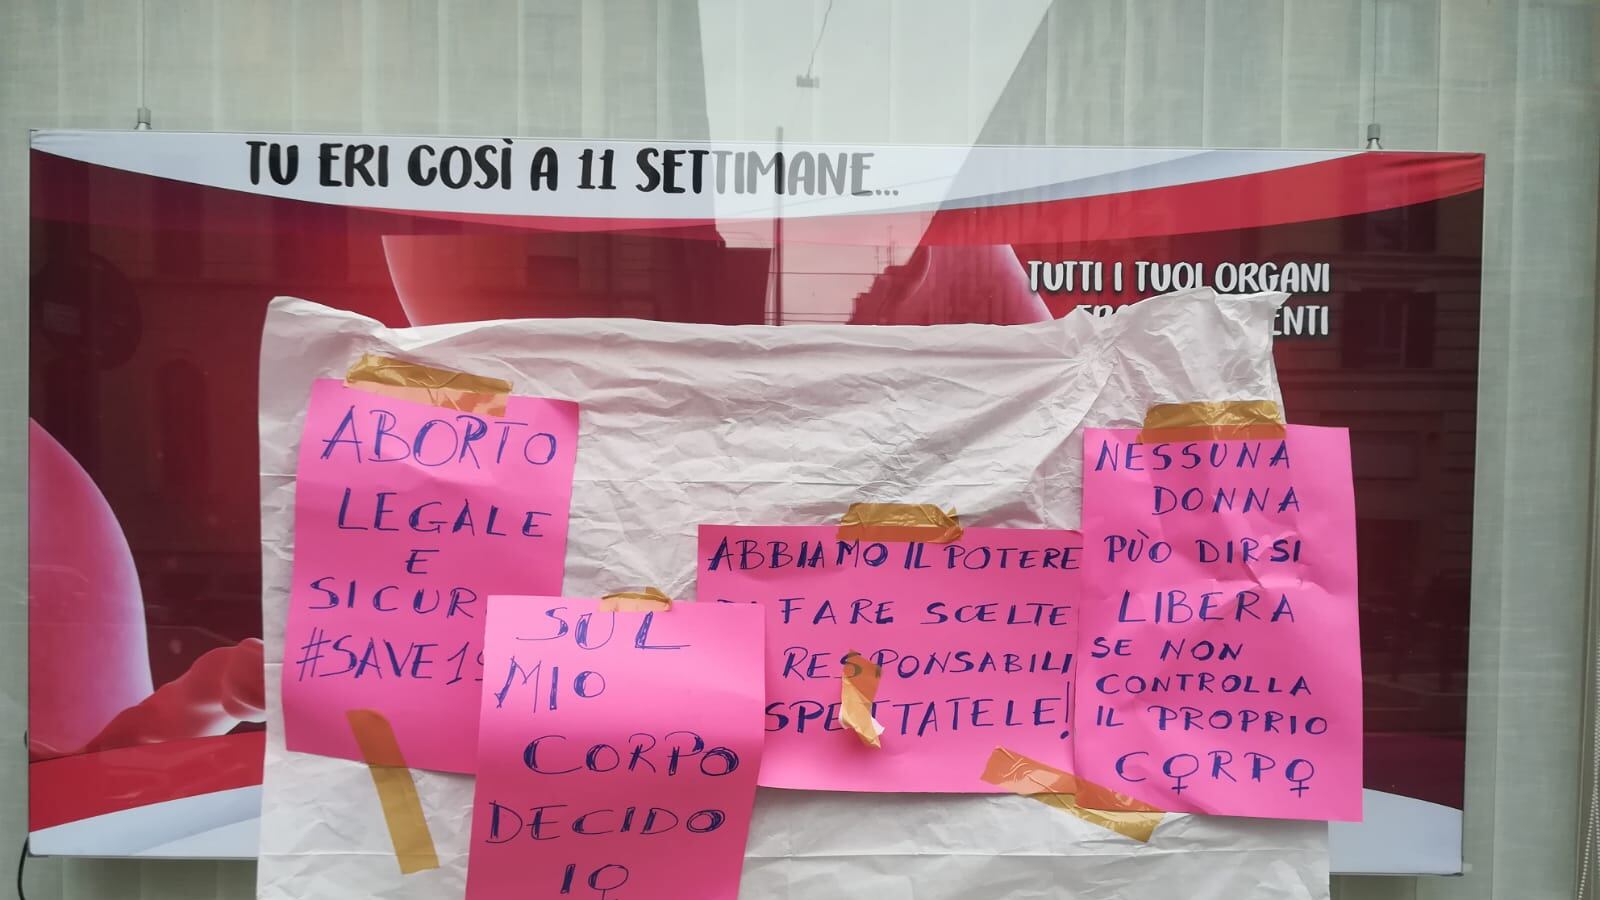 TU ERI COSÌ A 11 SETTIMANE...
TUTTI I TUOI ORGANI
ABORTO
LEGALE
E
SICUR
#SAVE19
SUL
MIO
CORPO
DECIDO
IO
ABBIAMO IL POTERE
FARE SCELTE
RESPONSABILI
NESSUNA
DONNA
PUÒ DIRSI
LIBERA
SE NON
CONTROLLA
IL PROPRIO
CORPO